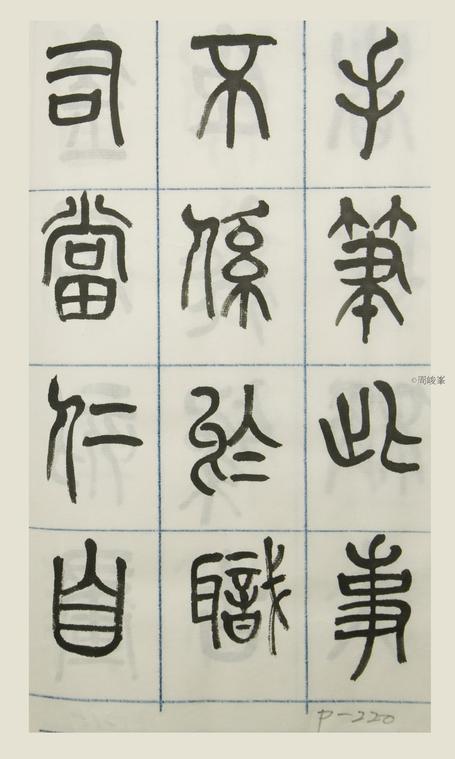 手筆此事
不係於職
司當仁自
©周峻峯
P-220